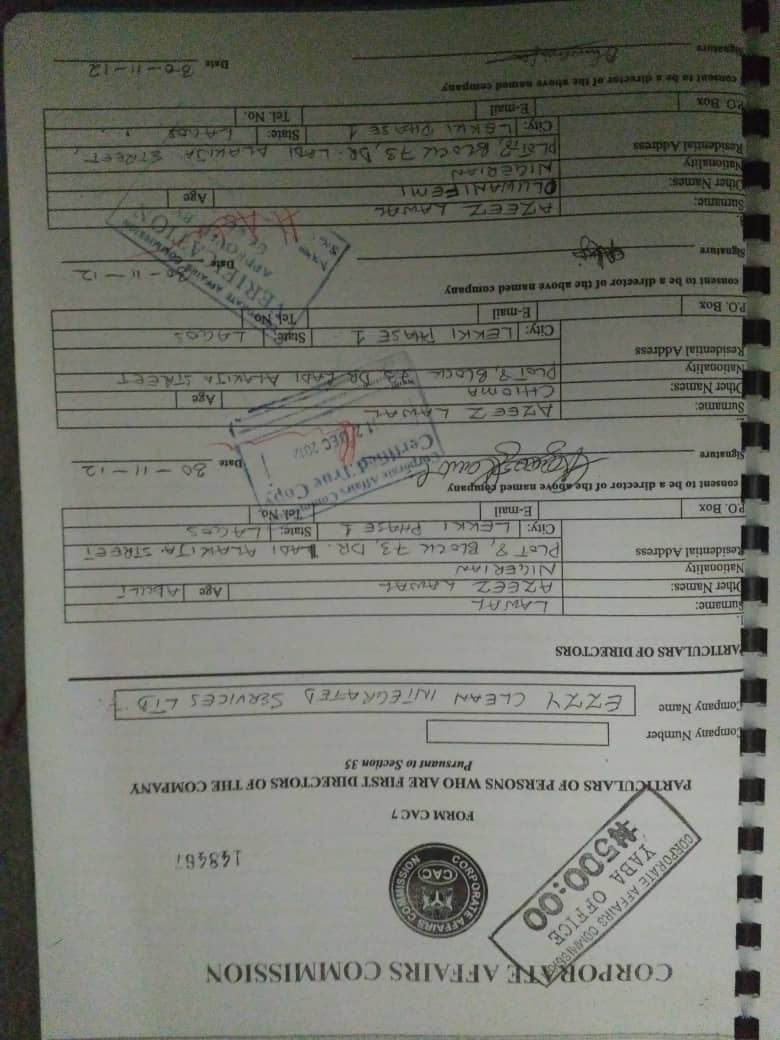 CORPORATE AFFAIRS COMMISSION
CORPORATE AFFAIRS COMMISSION
YABA OFFICE
₦500:00
CORPORATE AFFAIRS COMMISSION
CAC
148467
FORM CAC 7
PARTICULARS OF PERSONS WHO ARE FIRST DIRECTORS OF THE COMPANY
Pursuant to Section 35
Company Number
Company Name EZZY CLEAN INTEGRATED SERVICES LTD
PARTICULARS OF DIRECTORS
1.
Surname: LAWAL
Other Names: AZEEZ LAWAL Age ADULT
Nationality NIGERIAN
Residential Address PLOT 8, BLOCK 73, DR. LADI ALAKIJA STREET
City: LEKKI PHASE 1 State: LAGOS
P.O. Box E-mail Tel. No.
consent to be a director of the above named company
Signature Date 30-11-12
Corporate Affairs Commission
Certified True Copy
12 DEC 2012
Surname: AZEEZ LAWAL
Other Names: CHIOMA Age
Nationality
PLOT 8, BLOCK 73, DR LADI ALAKIJA STREET
Residential Address
City: LEKKI PHASE 1 State: LAGOS
P.O. Box E-mail Tel. No.
consent to be a director of the above named company
Signature Date 30-11-12
CORPORATE AFFAIRS COMMISSION
VERIFICATION
APPROVED BY
Name
Sign
Surname: AZEEZ LAWAL
Other Names: OLUWANIFEMI Age
Nationality NIGERIAN
Residential Address PLOT 8, BLOCK 73, DR. LADI ALAKIJA STREET,
City: LEKKI PHASE 1 State: LAGOS
P.O. Box E-mail Tel. No.
consent to be a director of the above named company
Signature Date 30-11-12